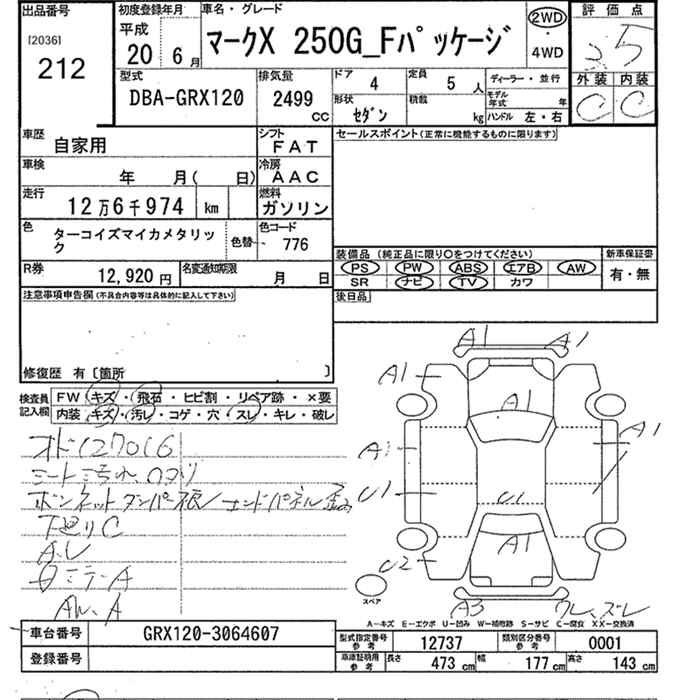 出品番号
[2036]
212
初度登録年月
平成
20 6月
車名・グレード
マークX 250G_Fパッケージ
2WD
・
4WD
評価点
3.5
外装 内装
C C
型式
DBA-GRX120
排気量
2499
CC
ドア
4
定員
5 人
形状
セダン
積載
kg
ディーラー・並行
モデル年式 年
ハンドル 左・右
車歴
自家用
シフト
FAT
車検
年 月( 日)
冷房
AAC
走行
12万6千974 km
燃料
ガソリン
色
ターコイズマイカメタリック
色替
色コード
776
R券
12,920円
名変通知期限
月 日
セールスポイント(正常に機能するものに限ります)
装備品(純正品に限り○をつけてください)
PS PW ABS エアB AW
SR ナビ TV カワ
新車保証書
有・無
後日品
注意事項申告欄(不具合内容等は具体的に記入して下さい)
修復歴 有〔箇所 〕
検査員記入欄
FW キズ・飛石・ヒビ割・リペア跡・×要
内装 キズ・汚レ・コゲ・穴・スレ・キレ・破レ
オド127016
シート汚れ、
ボンネットダンパー痕 エンドパネル歪み
下廻りC
A.レ
AW、A
A1 A1
A1
A1
A1 A1
U1 U1
A1
U2
A3
ワレ、ズレ
スペア
A－キズ E－エクボ U－凹み W－補修跡 S－サビ C－腐食 XX－交換済
車台番号 GRX120-3064607
登録番号
型式指定番号 参考 12737
類別区分番号 参考 0001
車庫証明用 参考 長さ 473cm 幅 177cm 高さ 143cm